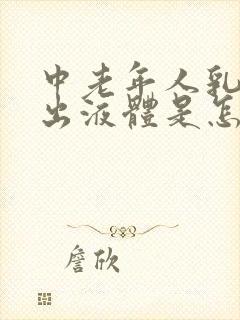 中老年人乳
出液體是怎
詹欣